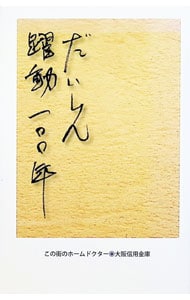 だいしん
躍動一〇〇年
この街のホームドクター㊎大阪信用金庫